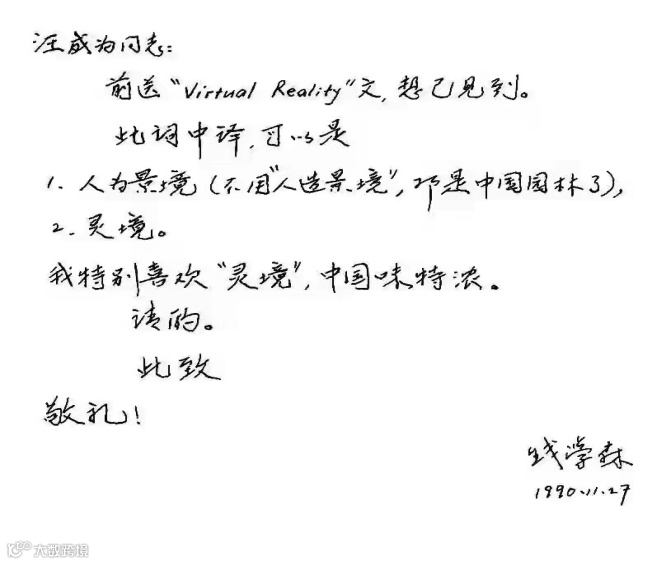 汪成为同志:
前送“Virtual Reality”文,想已见到。
此词中译,可以是
1. 人为景境(不用“人造景境”,那是中国园林了),
2. 灵境。
我特别喜欢“灵境”,中国味特浓。
请酌。
此致
敬礼!
钱学森
1990.11.27
大数跨境